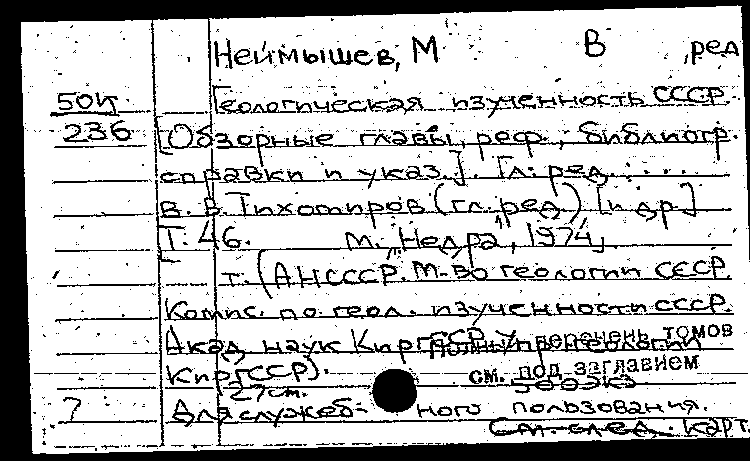 Неймышев, М В , ред
50К Геологическая изученность СССР.
236 [Обзорные главы, реф., библиогр.
справки и указ.]. Гл. ред. ....
В. В. Тихомиров (гл. ред.) [и др.]
Т. 46. М., "Недра", 1974,
т. (АН СССР. М-во геологии СССР.
Комис. по геол. изученности СССР.
Акад. наук КиргССР. Упр. геологии
Полный перечень томов
КиргССР).
см. под заглавием
27см.
7 Для служеб- ного пользования.
См. след. карт.